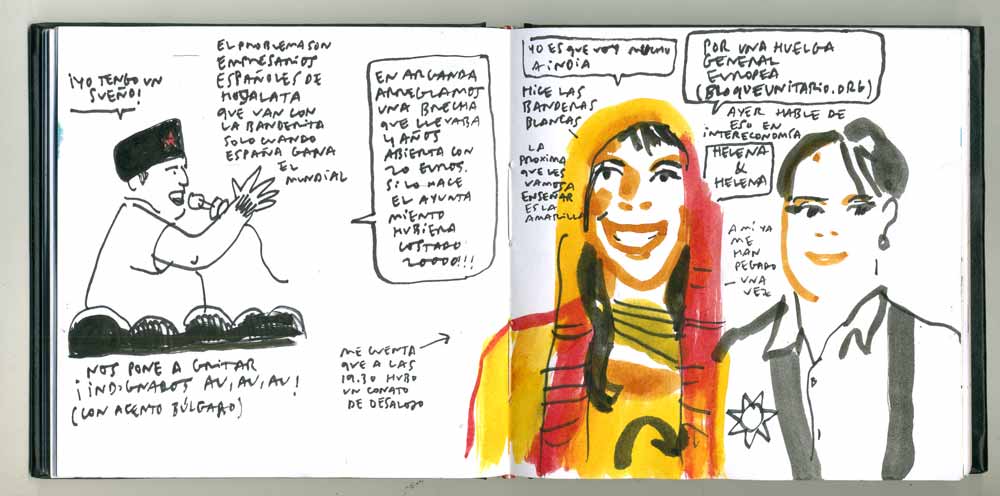 ¡YO TENGO UN
SUEÑO!
EL PROBLEMA SON
EMPRESARIOS
ESPAÑOLES DE
HOJALATA
QUE VAN CON
LA BANDERITA
SOLO CUANDO
ESPAÑA GANA
EL
MUNDIAL
NOS PONE A GRITAR
¡INDIGNADOS AU, AU, AU!
(CON ACENTO BÚLGARO)
EN ARGANDA
ARREGLAMOS
UNA BRECHA
QUE LLEVABA
4 AÑOS
ABIERTA CON
20 EUROS.
SI LO HACE
EL AYUNTA
MIENTO
HUBIERA
COSTADO
20000!!!
ME CUENTA
QUE A LAS
19.30 HUBO
UN CONATO
DE DESALOJO
YO ES QUE VOY MUCHO
A INDIA
HICE LAS
BANDERAS
BLANCAS
LA
PROXIMA
QUE LES
VAMOS A
ENSEÑAR
ES LA
AMARILLA
POR UNA HUELGA
GENERAL
EUROPEA
(BLOQUEUNITARIO.ORG)
AYER HABLE DE
ESO EN
INTERECONOMÍA
HELENA
&
HELENA
A MI YA
ME
HAN
PEGADO
UNA
VEZ